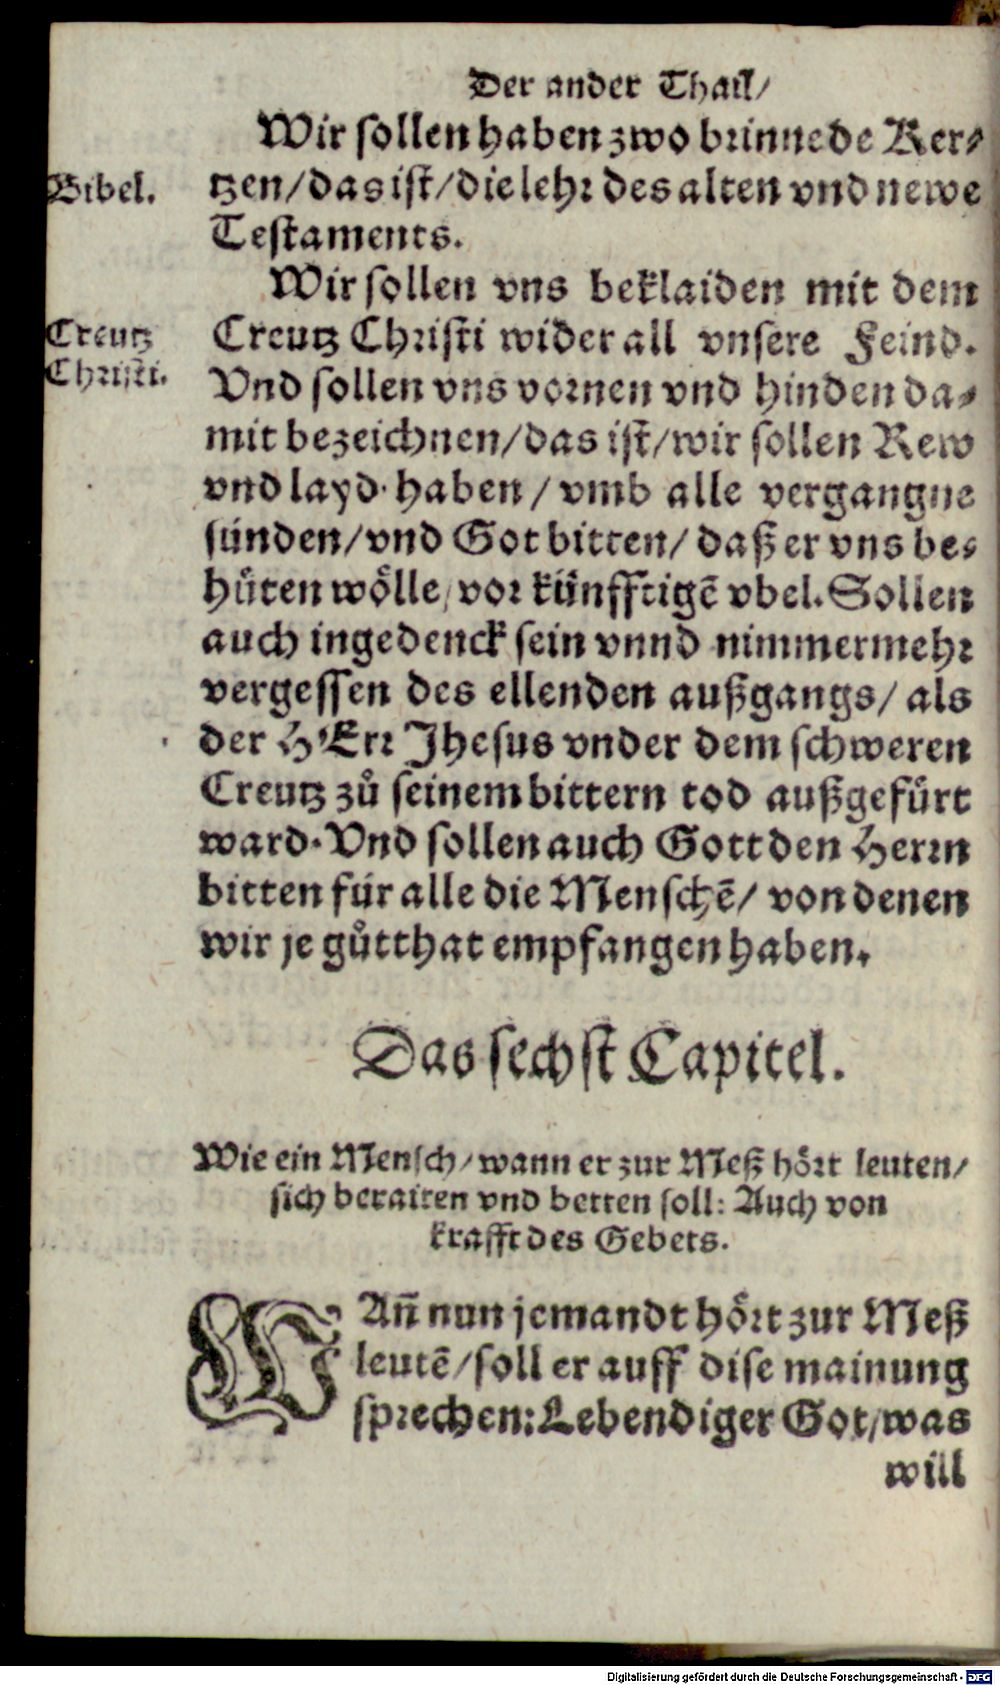 Der ander Thail/
Wir sollen haben zwo brinnede Ker⸗
Bibel.
tzen/das ist/die lehr des alten vnd newe
Testaments.
Wir sollen vns beklaiden mit dem
Creutz
Christi.
Creutz Christi wider all vnsere Feind.
Vnd sollen vns vornen vnd hinden da⸗
mit bezeichnen/das ist/wir sollen Rew
vnd layd haben/ vmb alle vergangne
sünden/vnd Got bitten/ daß er vns be⸗
hüten wölle/vor künfftigē vbel. Sollen
auch ingedenck sein vnnd nimmermehr
vergessen des ellenden außgangs/ als
der HErr Jhesus vnder dem schweren
Creutz zů seinem bittern tod außgefürt
ward. Vnd sollen auch Gott den Herrn
bitten für alle die Menschē/ von denen
wir je gůtthat empfangen haben.
Das sechst Capitel.
Wie ein Mensch/wann er zur Meß hört leuten/
sich beraiten vnd betten soll: Auch von
krafft des Gebets.
WAñ nun jemandt hört zur Meß
leutē/soll er auff dise mainung
sprechen: Lebendiger Got/was
will
Digitalisierung gefördert durch die Deutsche Forschungsgemeinschaft - DFG